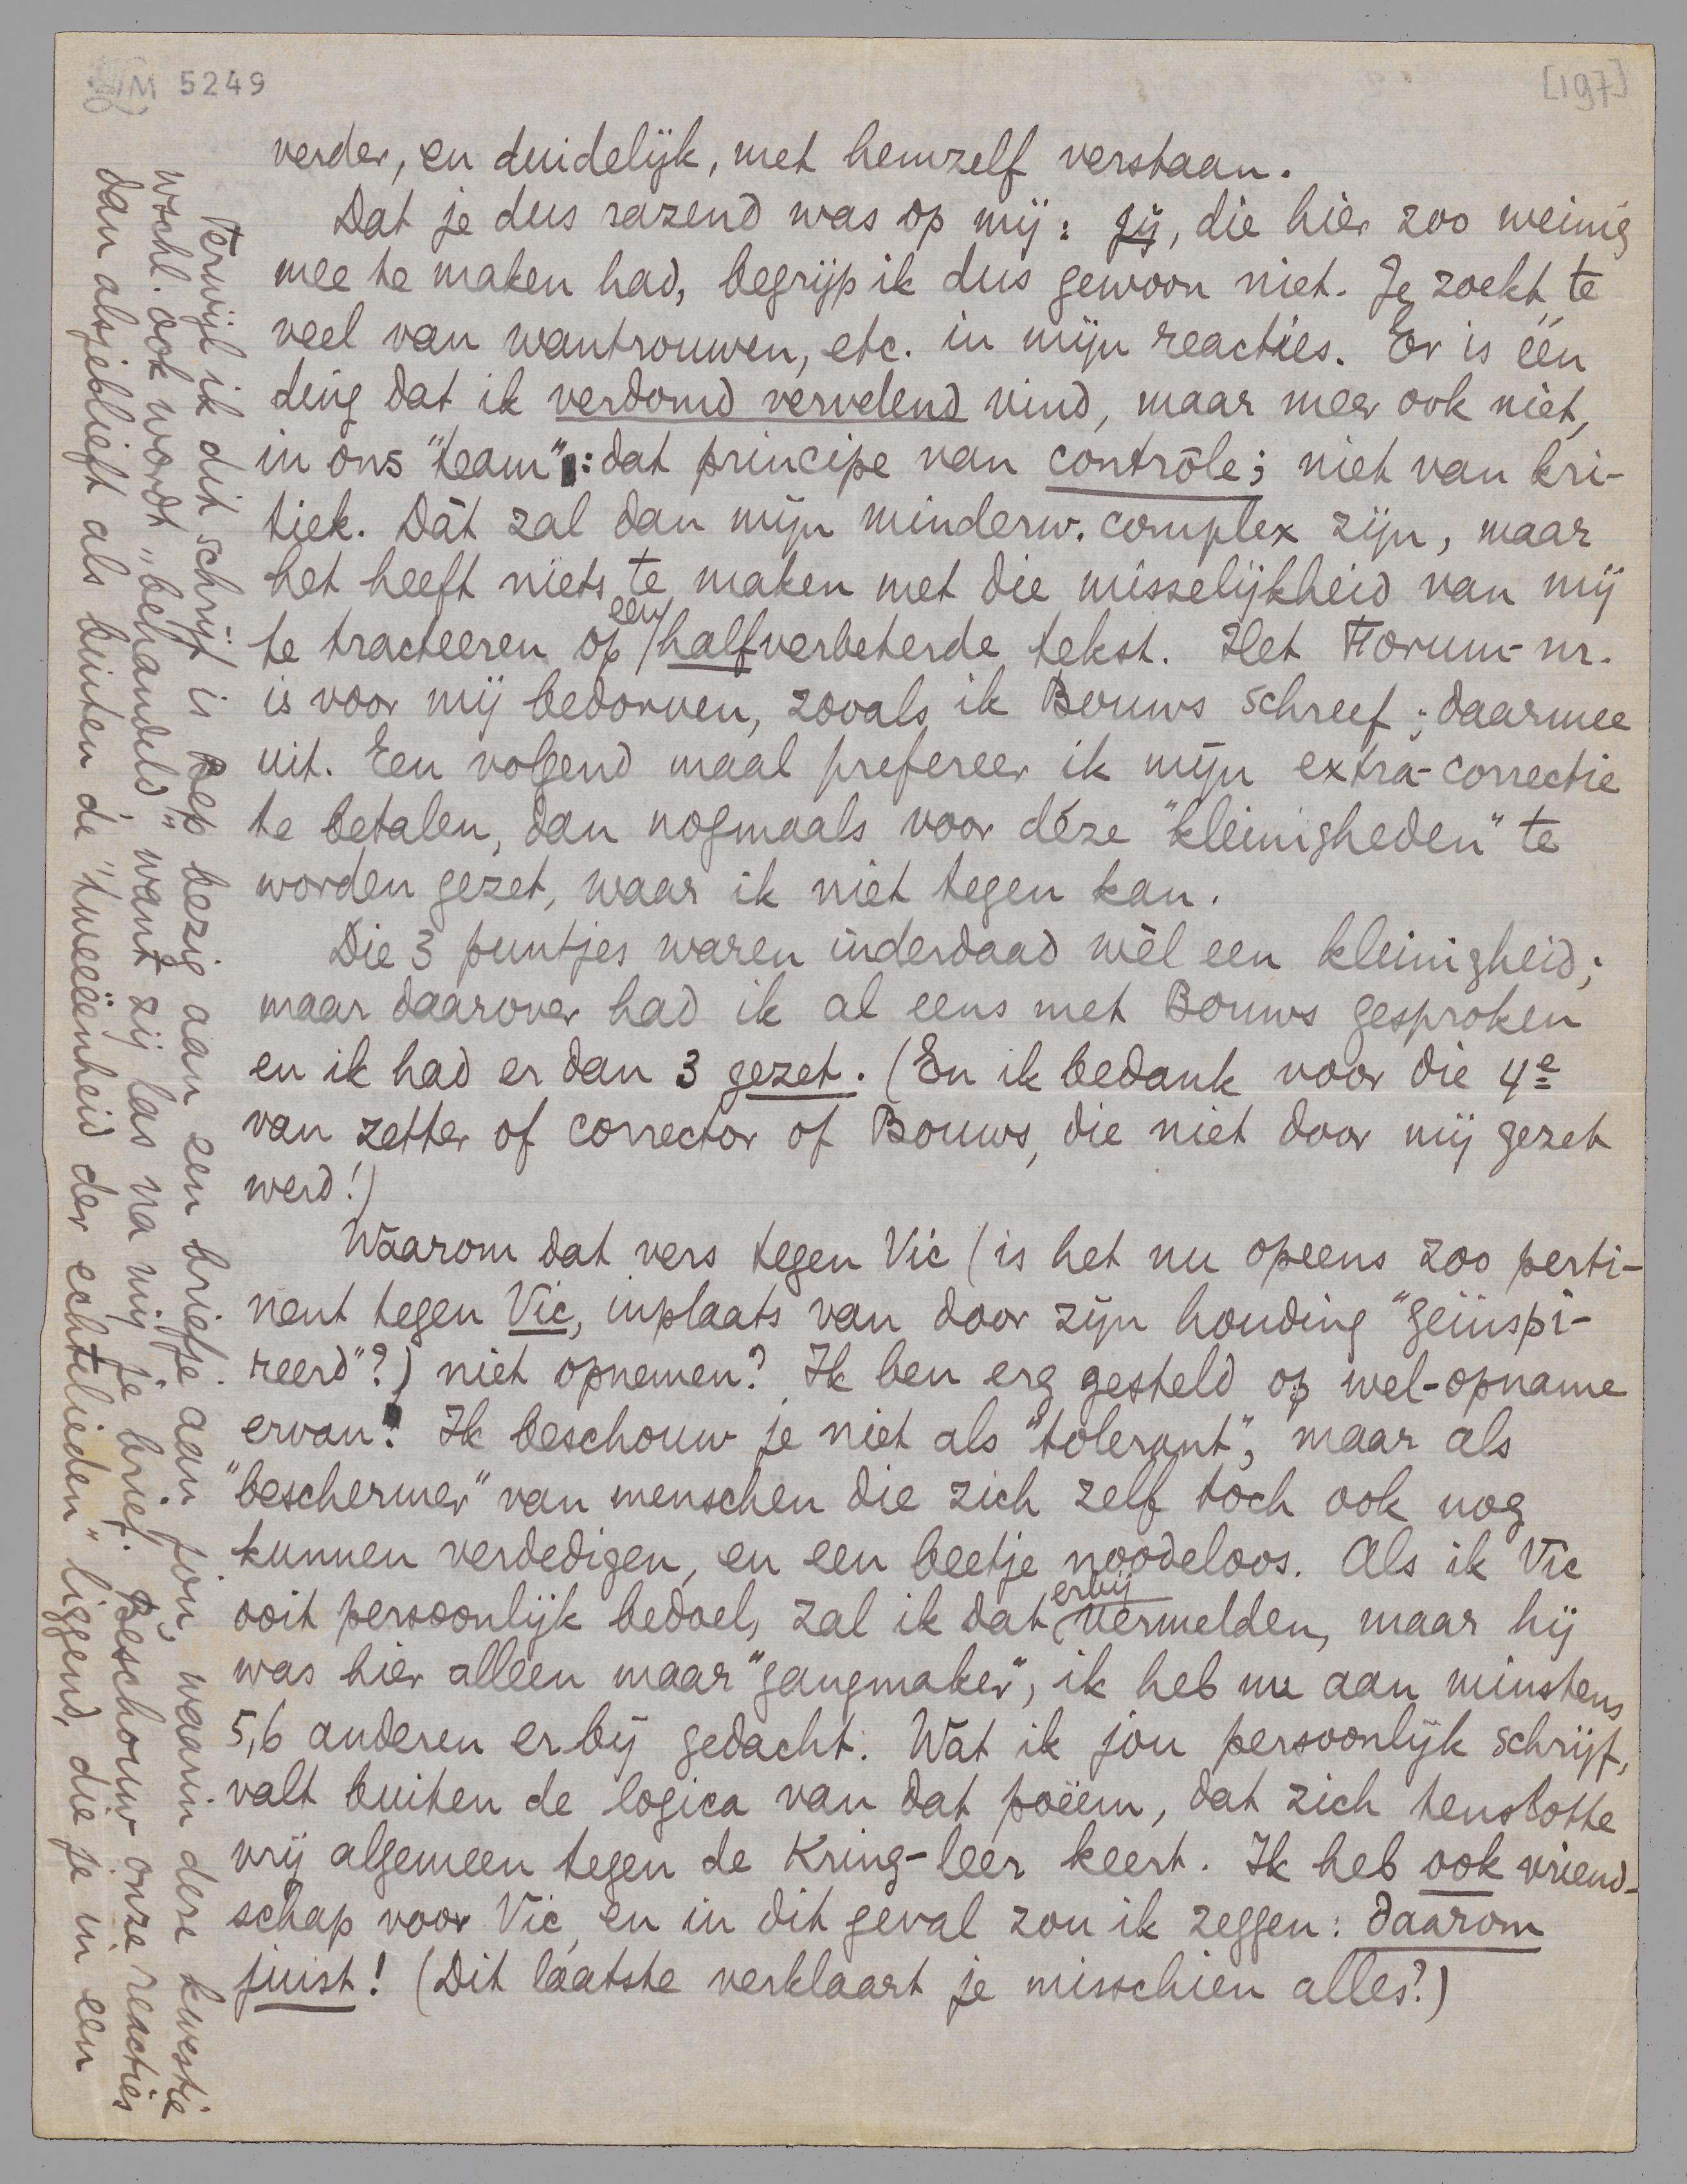 LM 5249
[197]
verder, en duidelijk, met hemzelf verstaan.
Dat je dus razend was op mij: jij, die hier zoo weinig
mee te maken had, begrijp ik dus gewoon niet. Je zoekt te
veel van wantrouwen, etc. in mijn reacties. Er is één
ding dat ik verdomd vervelend vind, maar meer ook niet,
in ons "team": dat principe van contrôle; niet van kri-
tiek. Dàt zal dan mijn minderw. complex zijn, maar
het heeft niets te maken met die misselijkheid van mij
te tracteeren op een halfverbeterde tekst. Het Forum-nr.
is voor mij bedorven, zooals ik Bouws schreef; daarmee
uit. Een volgend maal prefereer ik mijn extra-correctie
te betalen, dan nogmaals voor déze "kleinigheden" te
worden gezet, waar ik niet tegen kan.
Die 3 puntjes waren inderdaad wèl een kleinigheid;
maar daarover had ik al eens met Bouws gesproken
en ik had er dan 3 gezet. (En ik bedank voor die 4e
van zetter of corrector of Bouws, die niet door mij gezet
werd!)
Waarom dat vers tegen Vic (is het nu opeens zoo perti-
nent tegen Vic, inplaats van door zijn houding "geïnspi-
reerd"?) niet opnemen? Ik ben erg gesteld op wel-opname
ervan! Ik beschouw je niet als "tolerant", maar als
"beschermer" van menschen die zich zelf toch ook nog
kunnen verdedigen, en een beetje noodeloos. Als ik Vic
ooit persoonlijk bedoel, zal ik dat erbij vermelden, maar hij
was hier alleen maar "gangmaker", ik heb nu aan minstens
5,6 anderen erbij gedacht. Wat ik jou persoonlijk schrijf,
valt buiten de logica van dat poëem, dat zich tenslotte
vrij algemeen tegen de Kring-leer keert. Ik heb ook vriend-
schap voor Vic, en in dit geval zou ik zeggen: daarom
juist! (Dit láatste verklaart je misschien alles?)
Terwijl ik dit schrijf is Bep bezig aan een briefje aan jou, waarin deze kwestie
wschl. ook wordt "behandeld", want zij las na mij je brief. Beschouw onze reacties
dan alsjeblieft als buiten de "tweeëenheid der echtelieden" liggend, die je in een